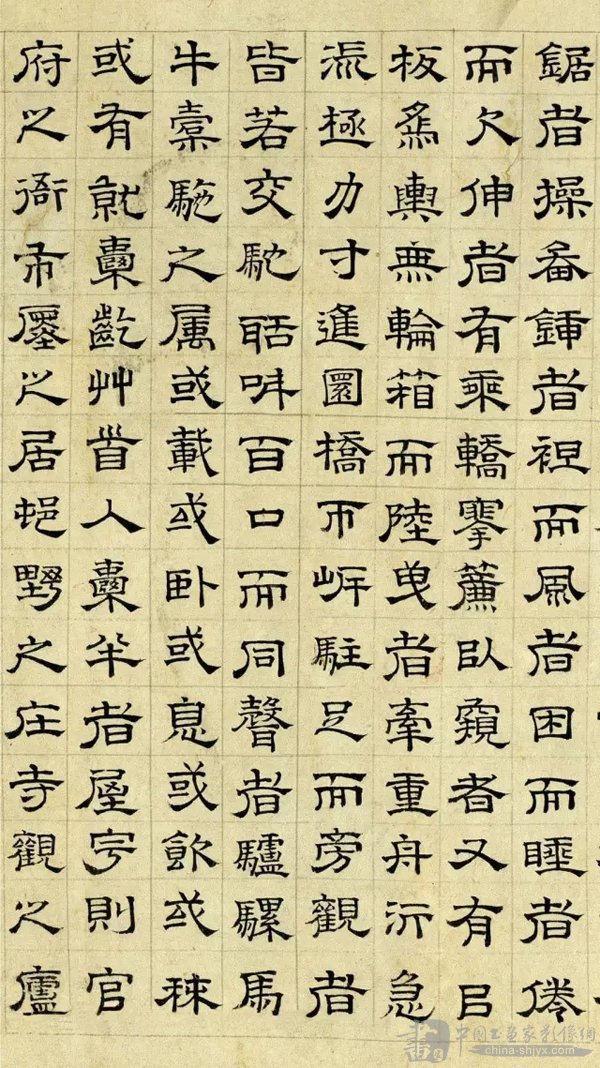 鋸者操畚鍤者袒而風者困而睡者倦
而欠伸者有乘轎搴簾臥窺者又有㠯
板為輿無輪箱而陸曳者牽重舟沂急
流極力寸進圜橋帀岸駐足而旁觀者
皆若交馳聒呌百口而同聲者驢騾馬
牛橐駞之属或載或臥或息或飲或秣
或有就橐齕艸首入橐半者屋宇則官
府之衙市廛之居邨野之庄寺觀之廬
中国书画家影像網
china-shjyx.com